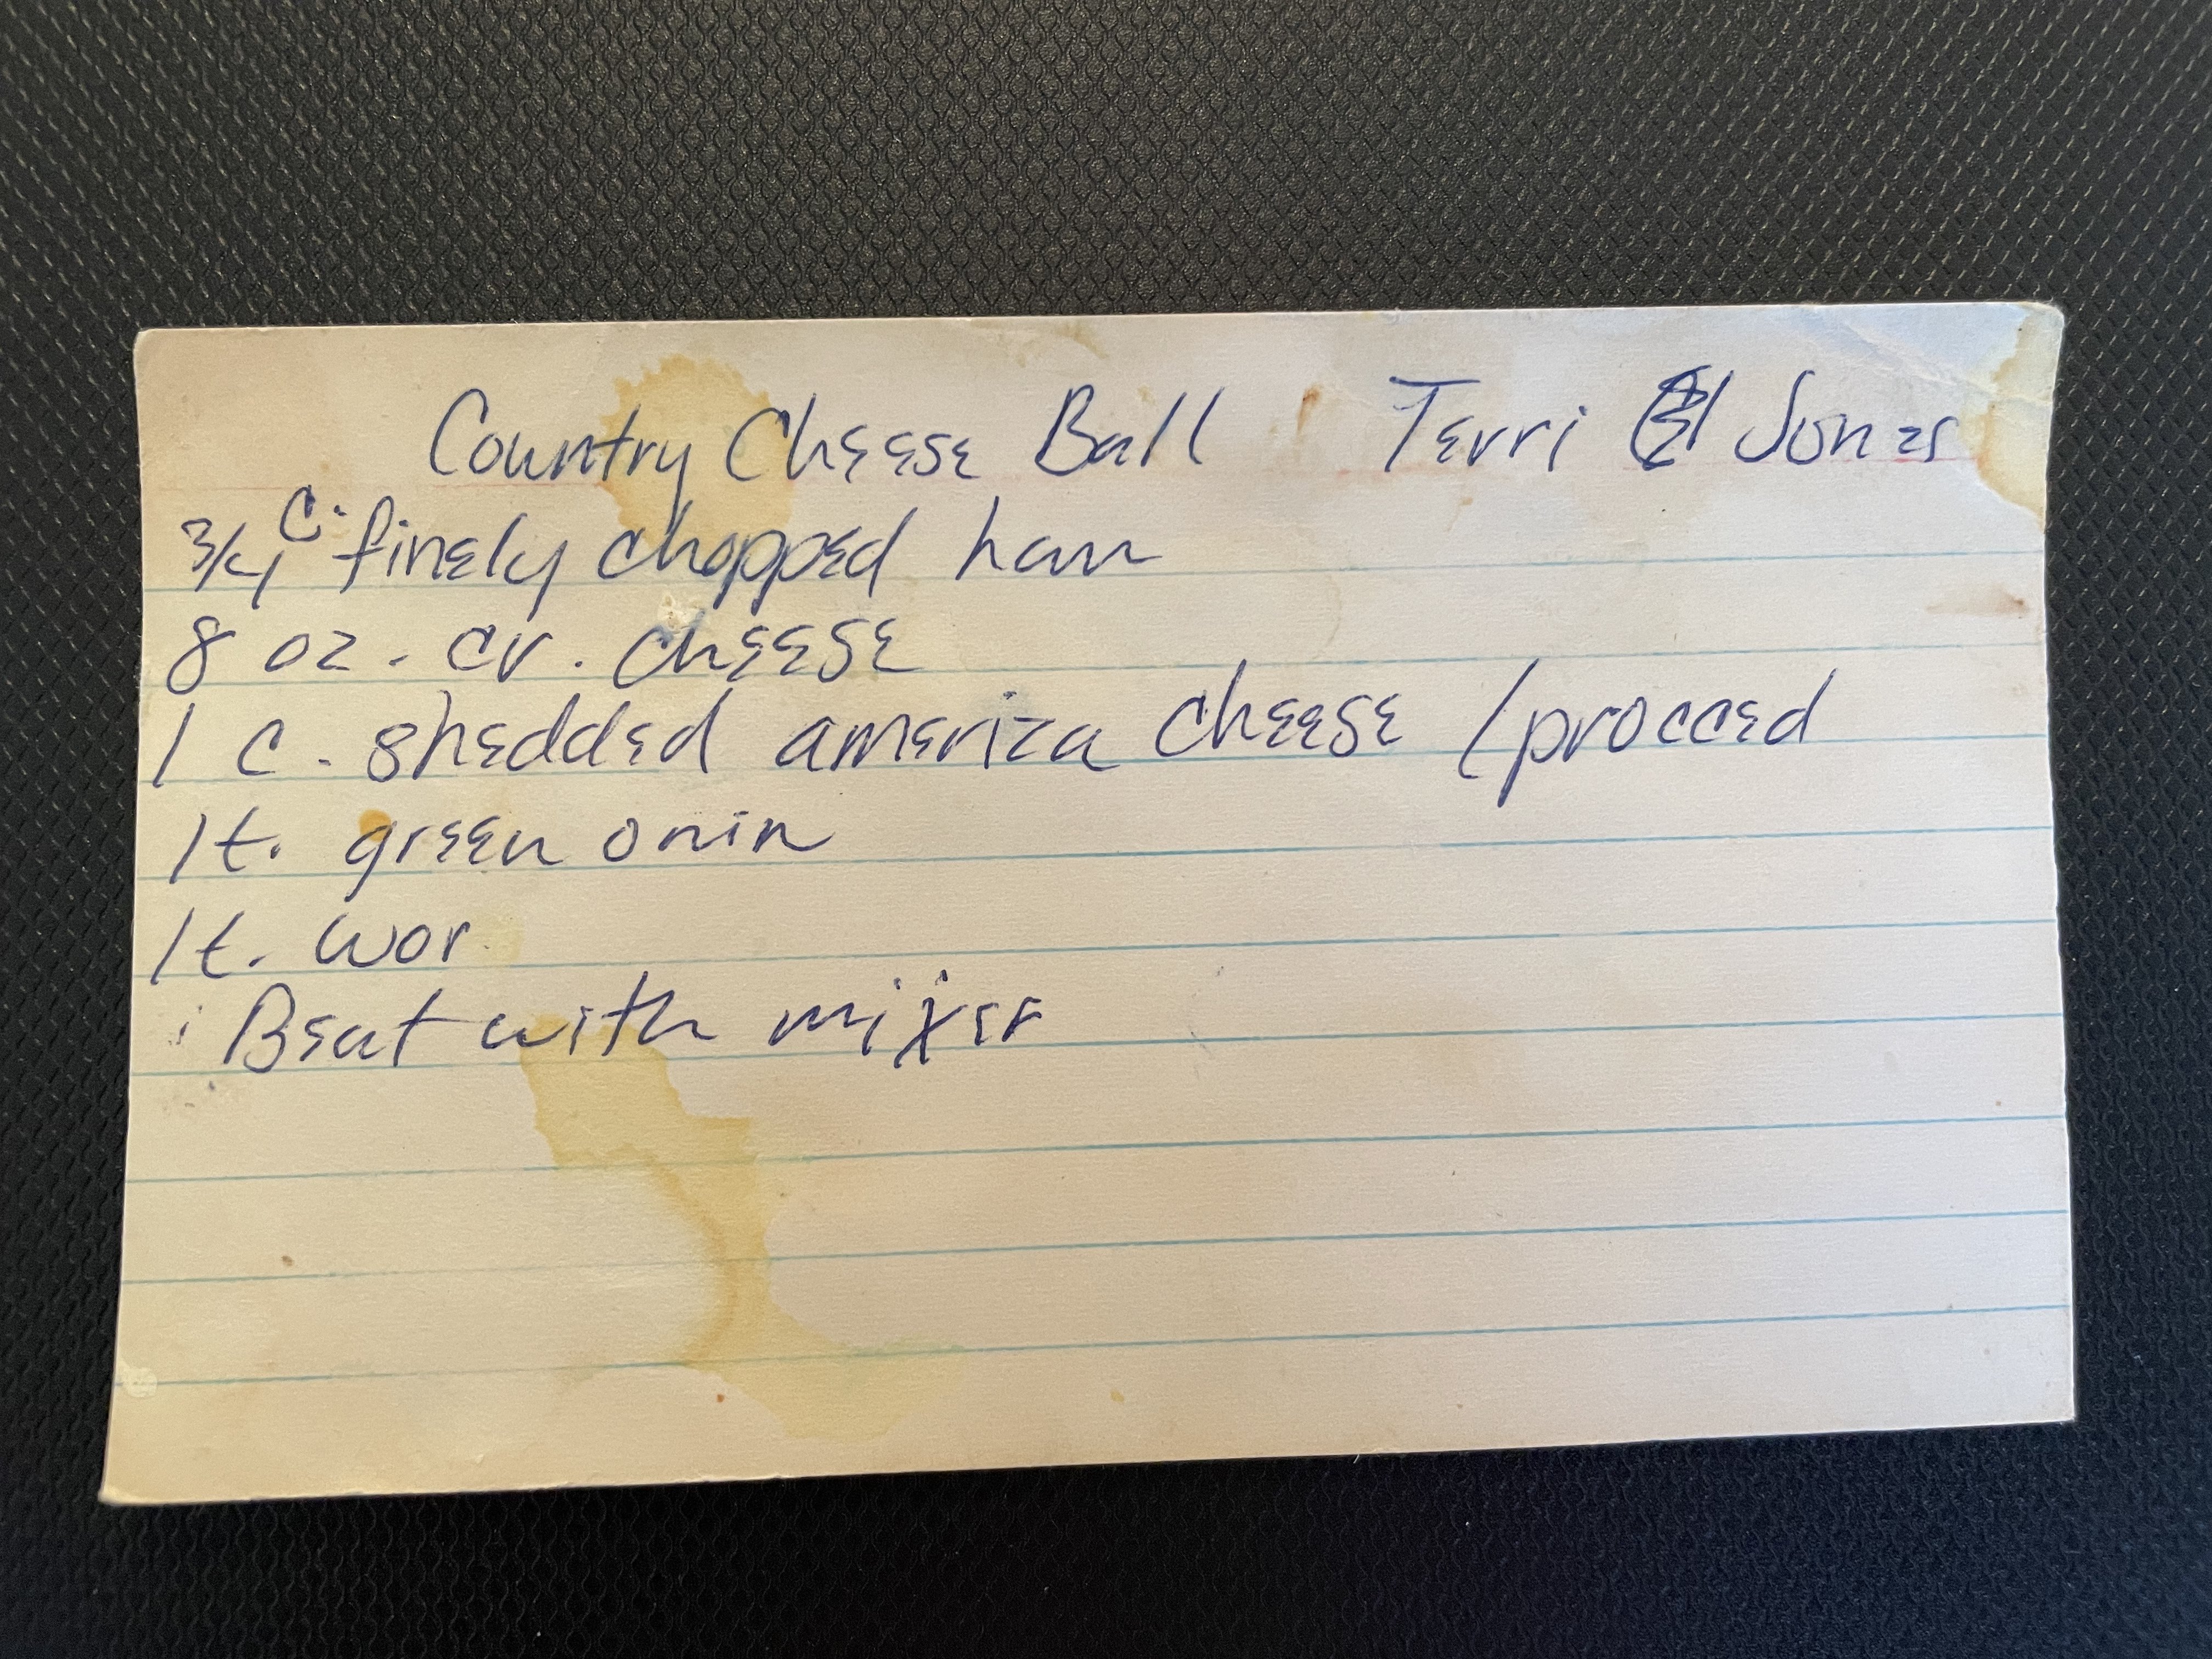 Country Cheese Ball Terri Jones
3/4 c. finely chopped ham
8 oz. cr. cheese
1 c. shedded america cheese /procced
1t. green onin
1t. wor
Beat with mixer